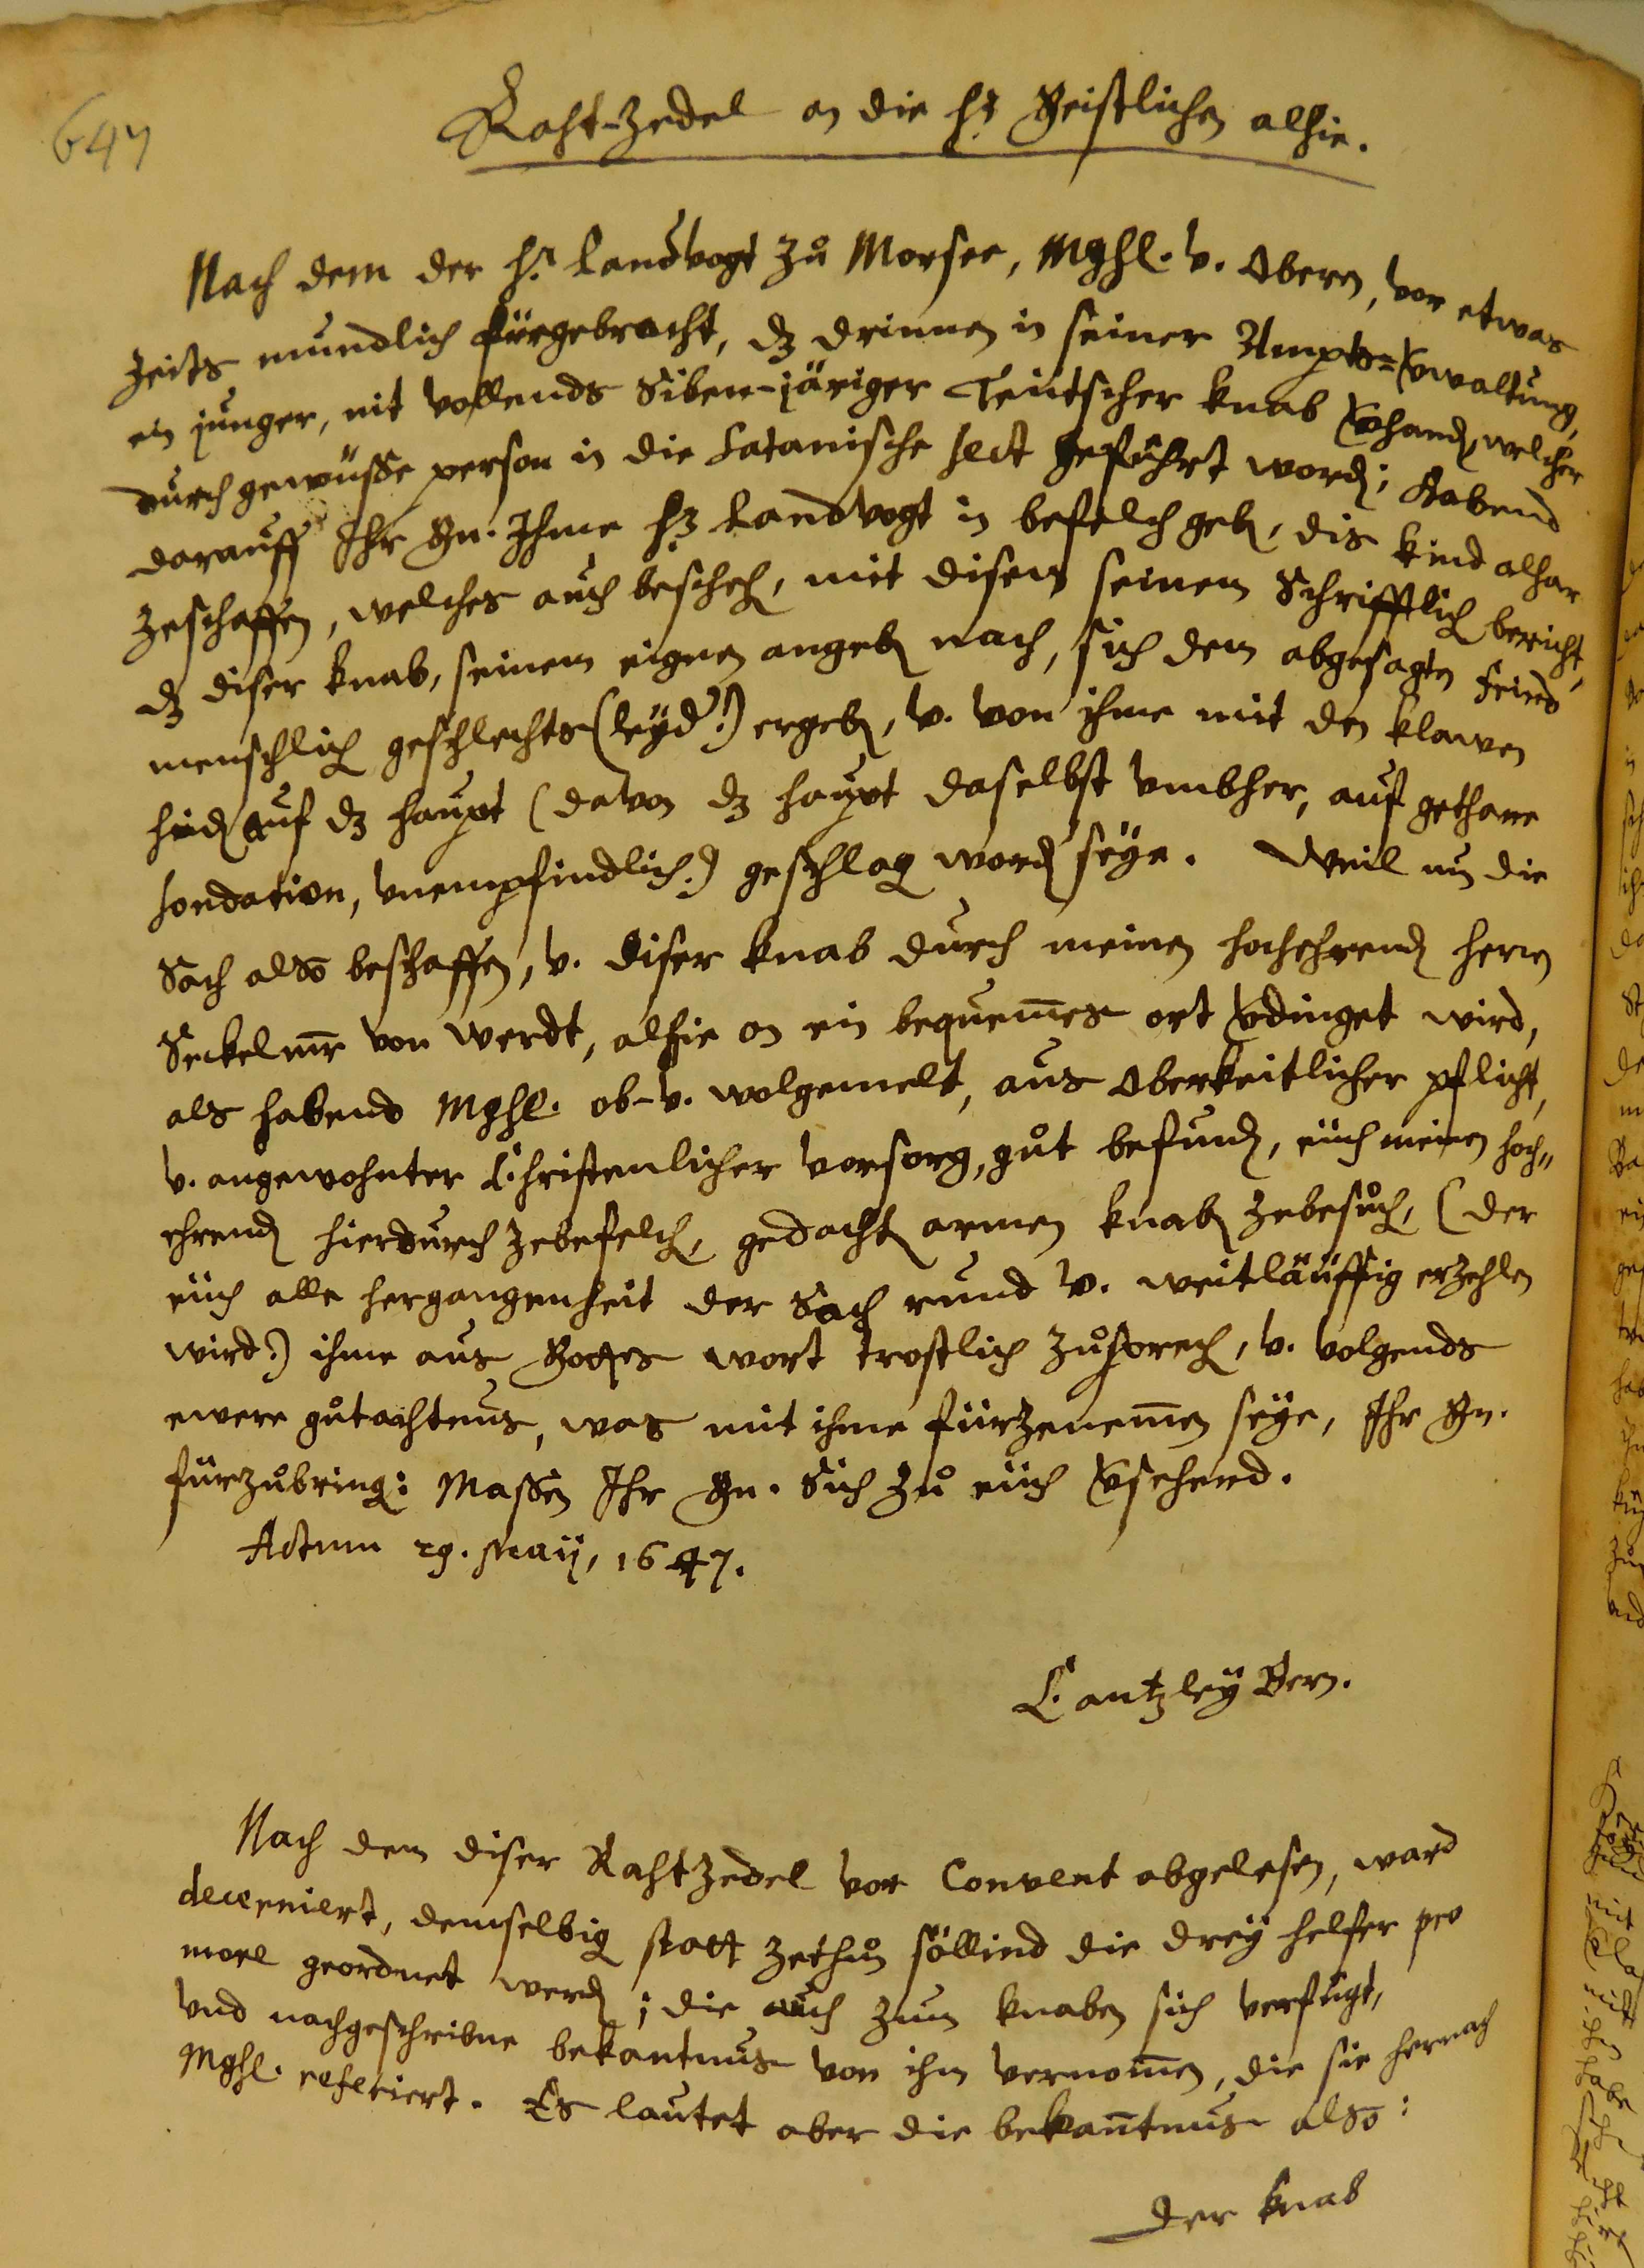 647
Raht-Zedel an die H. Geistlichen alhie.
Nach dem der Hr. Landvogt zů Morsee, Mghl. v. Obern, vor etwas
Zeits mundlich fürgebracht, dz drinnen in seiner Ampts=verwaltung,
ein junger, nit vollends Siben-järiger Teütscher knab verhanden, welcher
durch gewüsse person in die Satanische sect gefůhrt worden; Habend
darauff Ihr Gn. Ihme Hn Landvogt in befelch geben, dis kind alhar
zeschaffen, welches auch beschehen, mit disem seinem Schrifftlichen bericht,
dz diser knab, seinem eignen angeben nach, sich dem abgesagten Feind
menschlichen geschlechts (leyd!) ergeben, v. von ihme mit den klawen
auf dz haupt (davon dz haupt daselbst vmbher, auf gethane
sondation, vnempfindlich:) geschlagen worden seye. Weil nun die
Sach also beschaffen, v. diser knab durch meinen hochehrenden herren
Seckelmr von Werdt, alhie an ein bequemes ort verdinget wird,
als habend Mghl. ob-v. wolgemelt, aus Oberkeitlicher pflicht,
v. angewohnter Christenlicher vorsorg, gůt befunden, eüch meinen hoch„
ehrenden hierdurch zebefelchen, gedachten armen knaben zebesůchen, (der
eüch alle hergangenheit der Sach rund v. weitläuffig erzehlen
wird:) ihme aus Gottes wort trostlich zůsprechen, v. volgends
ewere gůtachtens, was mit ihme fürzenemen seye, Ihr Gn.
fürzůbringen: Massen Ihr Gn. Sich zů eüch versehend.
Actum 29. Maij, 1647.
Cantzley Bern.
Nach dem diser Rahtzedel vor Convent abgelesen, ward
decerniert, demselbigen statt zethůn söllind die drey helfer pro
more geordnet werden; die auch zum knaben sich verfůgt,
vnd nachgeschribne bekantnus von ihm vernomen, die sie hernach
Mghl. referiert. Es lautet aber die bekantnus also:
Der knab